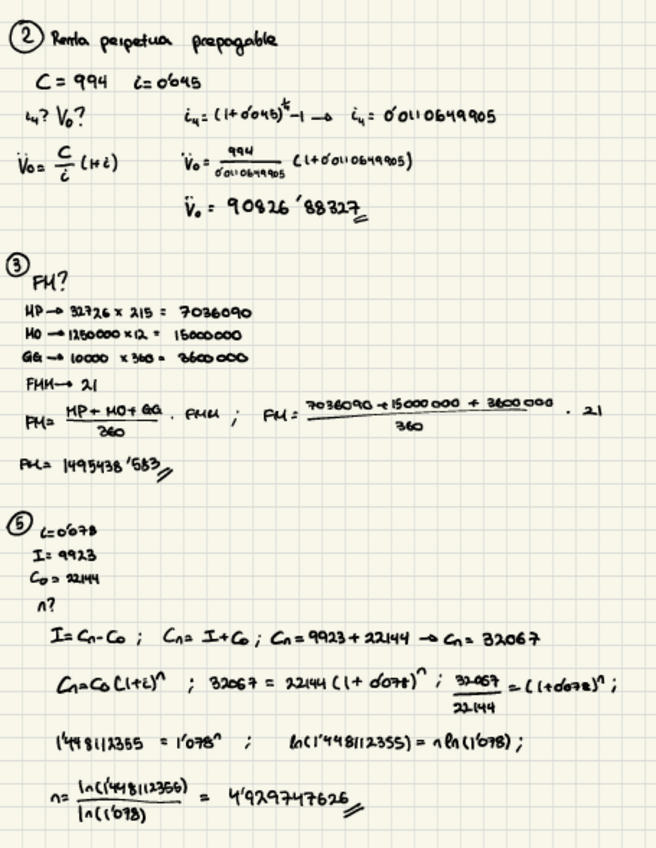 ② Renta perpetua prepagable
C = 994 i = 0'045
i₄? V₀? i₄ = (1+0'045)^¼ -1 → i₄ = 0'0110649905
V̈₀ = C/i (1+i) V̈₀ = 994/0'0110649905 (1+0'0110649905)
V̈₀ = 90826'88327
③
FM?
MP → 32726 x 215 = 7036090
MO → 1250000 x 12 = 15000000
GG → 10000 x 360 = 3600000
FMM → 21
FM = (MP + MO + GG)/360 · FMM ; FM = (7036090 + 15000000 + 3600000)/360 · 21
FM = 1495438'583
⑤ i = 0'078
I = 9923
C₀ = 22144
n?
I = Cn - C₀ ; Cn = I + C₀ ; Cn = 9923 + 22144 → Cn = 32067
Cn = C₀ (1+i)ⁿ ; 32067 = 22144 (1 + 0'078)ⁿ ; 32067/22144 = (1+0'078)ⁿ ;
1'448112355 = 1'078ⁿ ; ln(1'448112355) = n ln(1'078) ;
n = ln(1'448112355)/ln(1'078) = 4'929747626